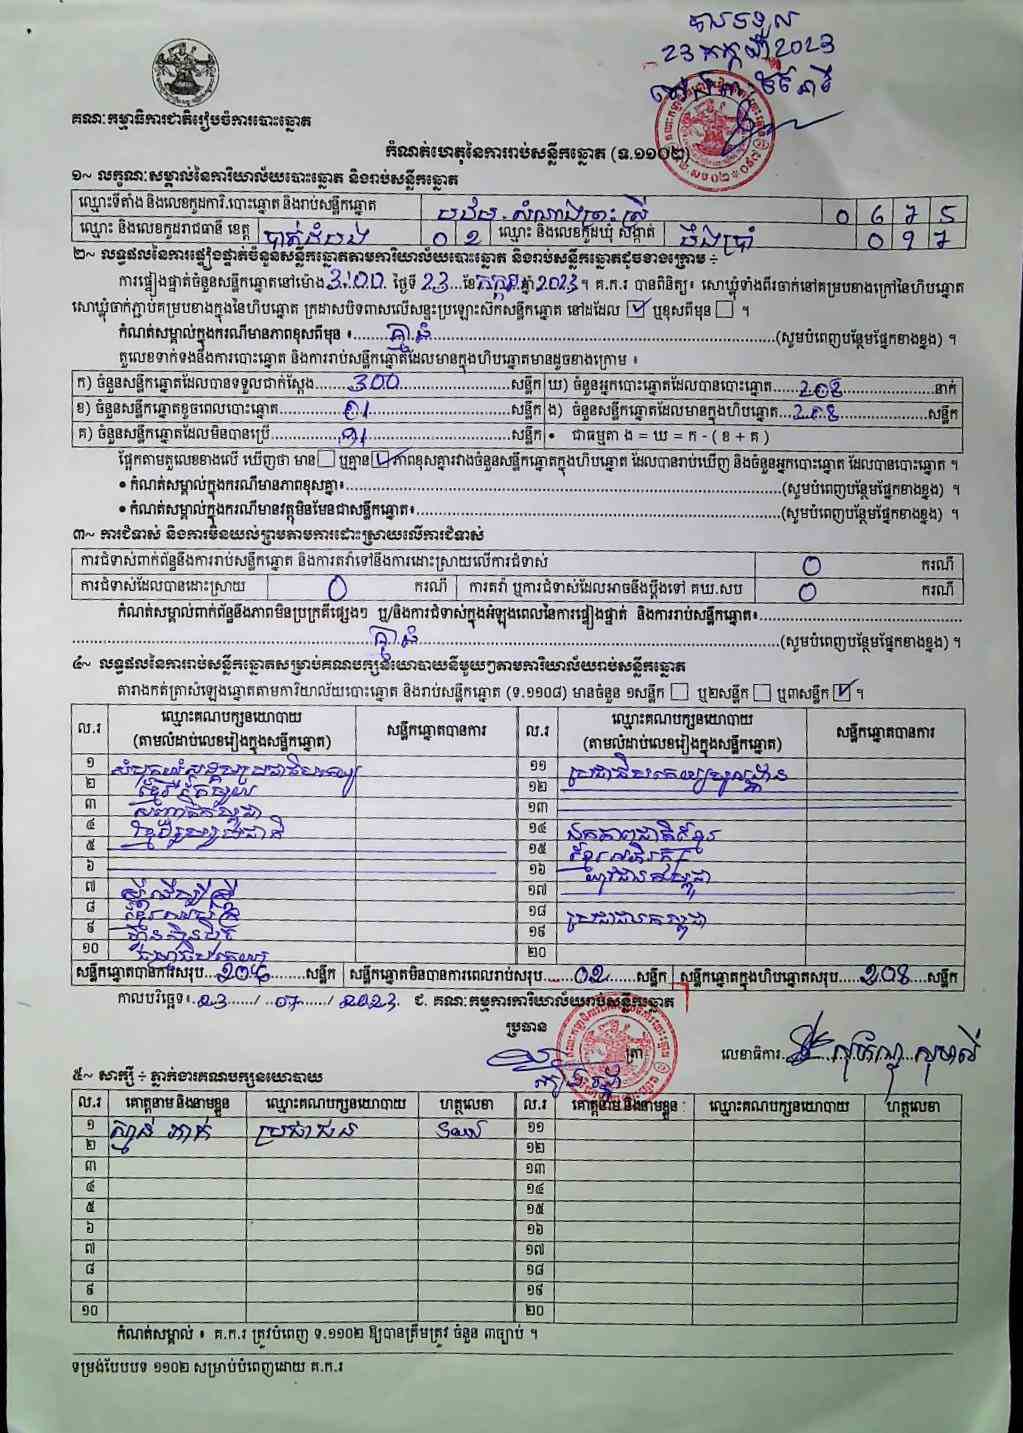 បានទទួល
23 កក្កដា 2023
គណៈកម្មាធិការជាតិរៀបចំការបោះឆ្នោត
កំណត់ហេតុនៃការរាប់សន្លឹកឆ្នោត (ទ.១១០២)
១~ លក្ខណៈសម្គាល់នៃការិយាល័យបោះឆ្នោត និងរាប់សន្លឹកឆ្នោត
ឈ្មោះទីតាំង និងលេខកូដការិ.បោះឆ្នោត និងរាប់សន្លឹកឆ្នោត 0 6 7 5
ឈ្មោះ និងលេខកូដរាជធានី ខេត្ត បាត់ដំបង 0 2 ឈ្មោះ និងលេខកូដឃុំ សង្កាត់
២~ លទ្ធផលនៃការផ្ទៀងផ្ទាត់ចំនួនសន្លឹកឆ្នោតតាមការិយាល័យបោះឆ្នោត និងរាប់សន្លឹកឆ្នោតដូចខាងក្រោម ÷
ការផ្ទៀងផ្ទាត់ចំនួនសន្លឹកឆ្នោតនៅម៉ោង 3:00 ថ្ងៃទី 23 ខែ កក្កដា ឆ្នាំ 2023 ។ គ.ក.រ បានពិនិត្យ៖ សោឃ្លុំទាំងពីរចាក់នៅគម្របខាងក្រៅនៃហិបឆ្នោត
សោឃ្លុំចាក់ភ្ជាប់គម្របខាងក្នុងនៃហិបឆ្នោត ក្រដាសបិទពាសលើសន្ទះប្រឡោះស៊កសន្លឹកឆ្នោត នៅដដែល ☑ ឬខុសពីមុន ☐ ។
កំណត់សម្គាល់ក្នុងករណីមានភាពខុសពីមុន ៖ គ្មាន (សូមបំពេញបន្ថែមផ្នែកខាងខ្នង) ។
តួលេខទាក់ទងនឹងការបោះឆ្នោត និងការរាប់សន្លឹកឆ្នោតដែលមានក្នុងហិបឆ្នោតមានដូចខាងក្រោម ៖
ក) ចំនួនសន្លឹកឆ្នោតដែលបានទទួលជាក់ស្តែង 300 សន្លឹក ឃ) ចំនួនអ្នកបោះឆ្នោតដែលបានបោះឆ្នោត 208 នាក់
ខ) ចំនួនសន្លឹកឆ្នោតខូចពេលបោះឆ្នោត 01 សន្លឹក ង) ចំនួនសន្លឹកឆ្នោតដែលមានក្នុងហិបឆ្នោត 208 សន្លឹក
គ) ចំនួនសន្លឹកឆ្នោតដែលមិនបានប្រើ 91 សន្លឹក • ជាធម្មតា ង = ឃ = ក - ( ខ + គ )
ផ្អែកតាមតួលេខខាងលើ ឃើញថា មាន ☐ ឬគ្មាន ☑ ភាពខុសគ្នារវាងចំនួនសន្លឹកឆ្នោតក្នុងហិបឆ្នោត ដែលបានរាប់ឃើញ និងចំនួនអ្នកបោះឆ្នោត ដែលបានបោះឆ្នោត ។
• កំណត់សម្គាល់ក្នុងករណីមានភាពខុសគ្នា៖ (សូមបំពេញបន្ថែមផ្នែកខាងខ្នង) ។
• កំណត់សម្គាល់ក្នុងករណីមានវត្ថុមិនមែនជាសន្លឹកឆ្នោត៖ (សូមបំពេញបន្ថែមផ្នែកខាងខ្នង) ។
៣~ ការជំទាស់ និងការមិនយល់ព្រមតាមការដោះស្រាយលើការជំទាស់
ការជំទាស់ពាក់ព័ន្ធនឹងការរាប់សន្លឹកឆ្នោត និងការតវ៉ាទៅនឹងការដោះស្រាយលើការជំទាស់ 0 ករណី
ការជំទាស់ដែលបានដោះស្រាយ 0 ករណី ការតវ៉ា ឬការជំទាស់ដែលអាចនឹងប្តឹងទៅ គឃ.សប 0 ករណី
កំណត់សម្គាល់ពាក់ព័ន្ធនឹងភាពមិនប្រក្រតីផ្សេងៗ ឬ/និងការជំទាស់ក្នុងអំឡុងពេលនៃការផ្ទៀងផ្ទាត់ និងការរាប់សន្លឹកឆ្នោត៖
គ្មាន (សូមបំពេញបន្ថែមផ្នែកខាងខ្នង) ។
៤~ លទ្ធផលនៃការរាប់សន្លឹកឆ្នោតសម្រាប់គណបក្សនយោបាយនីមួយៗតាមការិយាល័យរាប់សន្លឹកឆ្នោត
តារាងកត់ត្រាសំឡេងឆ្នោតតាមការិយាល័យបោះឆ្នោត និងរាប់សន្លឹកឆ្នោត (ទ.១១០៨) មានចំនួន ១សន្លឹក ☐ ឬ២សន្លឹក ☐ ឬ៣សន្លឹក ☑ ។
ល.រ ឈ្មោះគណបក្សនយោបាយ (តាមលំដាប់លេខរៀងក្នុងសន្លឹកឆ្នោត) សន្លឹកឆ្នោតបានការ ល.រ ឈ្មោះគណបក្សនយោបាយ (តាមលំដាប់លេខរៀងក្នុងសន្លឹកឆ្នោត) សន្លឹកឆ្នោតបានការ
១ ១១
២ ១២
៣ ១៣
៤ ១៤ ឯកភាពជាតិខ្មែរ
៥ ១៥
៦ ១៦
៧ ១៧
៨ ១៨ ប្រជាជនកម្ពុជា
៩ ១៩
១០ ២០
សន្លឹកឆ្នោតបានការសរុប 206 សន្លឹក សន្លឹកឆ្នោតមិនបានការពេលរាប់សរុប 02 សន្លឹក សន្លឹកឆ្នោតក្នុងហិបឆ្នោតសរុប 208 សន្លឹក
កាលបរិច្ឆេទ៖ 23 / 07 / 2023. ជ. គណៈកម្មការការិយាល័យរាប់សន្លឹកឆ្នោត
ប្រធាន
ត្រា លេខាធិការ
៥~ សាក្សី ÷ ភ្នាក់ងារគណបក្សនយោបាយ
ល.រ គោត្តនាម និងនាមខ្លួន ឈ្មោះគណបក្សនយោបាយ ហត្ថលេខា ល.រ គោត្តនាម និងនាមខ្លួន ឈ្មោះគណបក្សនយោបាយ ហត្ថលេខា
១ ប្រជាជន ១១
២ ១២
៣ ១៣
៤ ១៤
៥ ១៥
៦ ១៦
៧ ១៧
៨ ១៨
៩ ១៩
១០ ២០
កំណត់សម្គាល់ ៖ គ.ក.រ ត្រូវបំពេញ ទ.១១០២ ឱ្យបានត្រឹមត្រូវ ចំនួន ៣ច្បាប់ ។
ទម្រង់បែបបទ ១១០២ សម្រាប់បំពេញដោយ គ.ក.រ